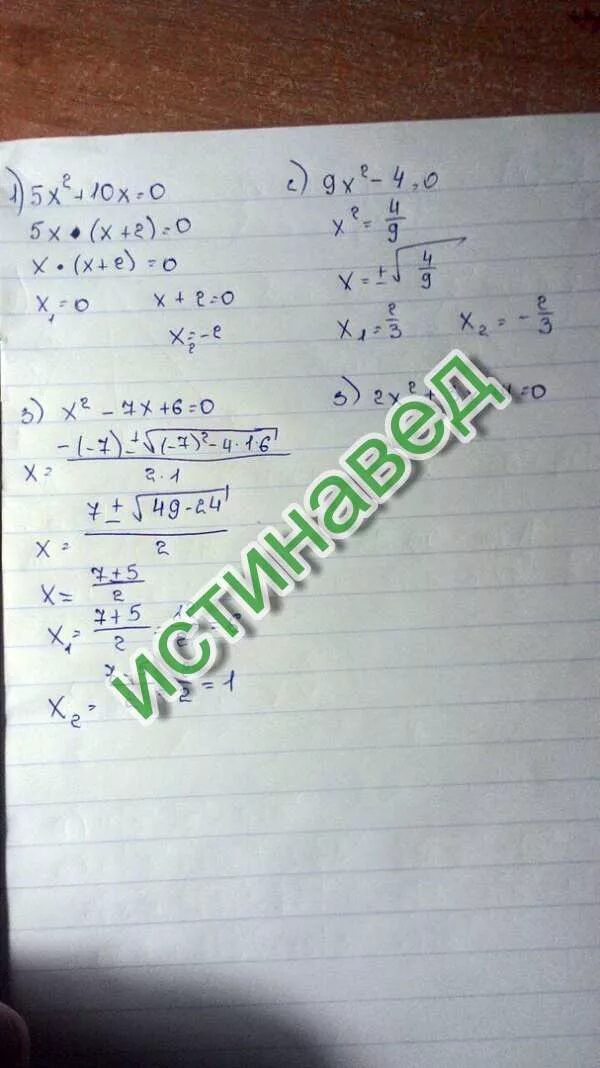 1) 5x² + 10x = 0
5x • (x + 2) = 0
x • (x + 2) = 0
x₁ = 0 x + 2 = 0
x₂ = -2
2) 9x² - 4 = 0
x² = 4/9
x = ±√(4/9)
x₁ = 2/3 x₂ = - 2/3
3) x² - 7x + 6 = 0
x = (-(-7) ± √((-7)² - 4·1·6)) / (2·1)
x = (7 ± √(49 - 24)) / 2
x = (7 + 5) / 2
x₁ = (7 + 5) / 2
x₂ = = 1
3) 2x² + = 0
ИСТИНАВЕД